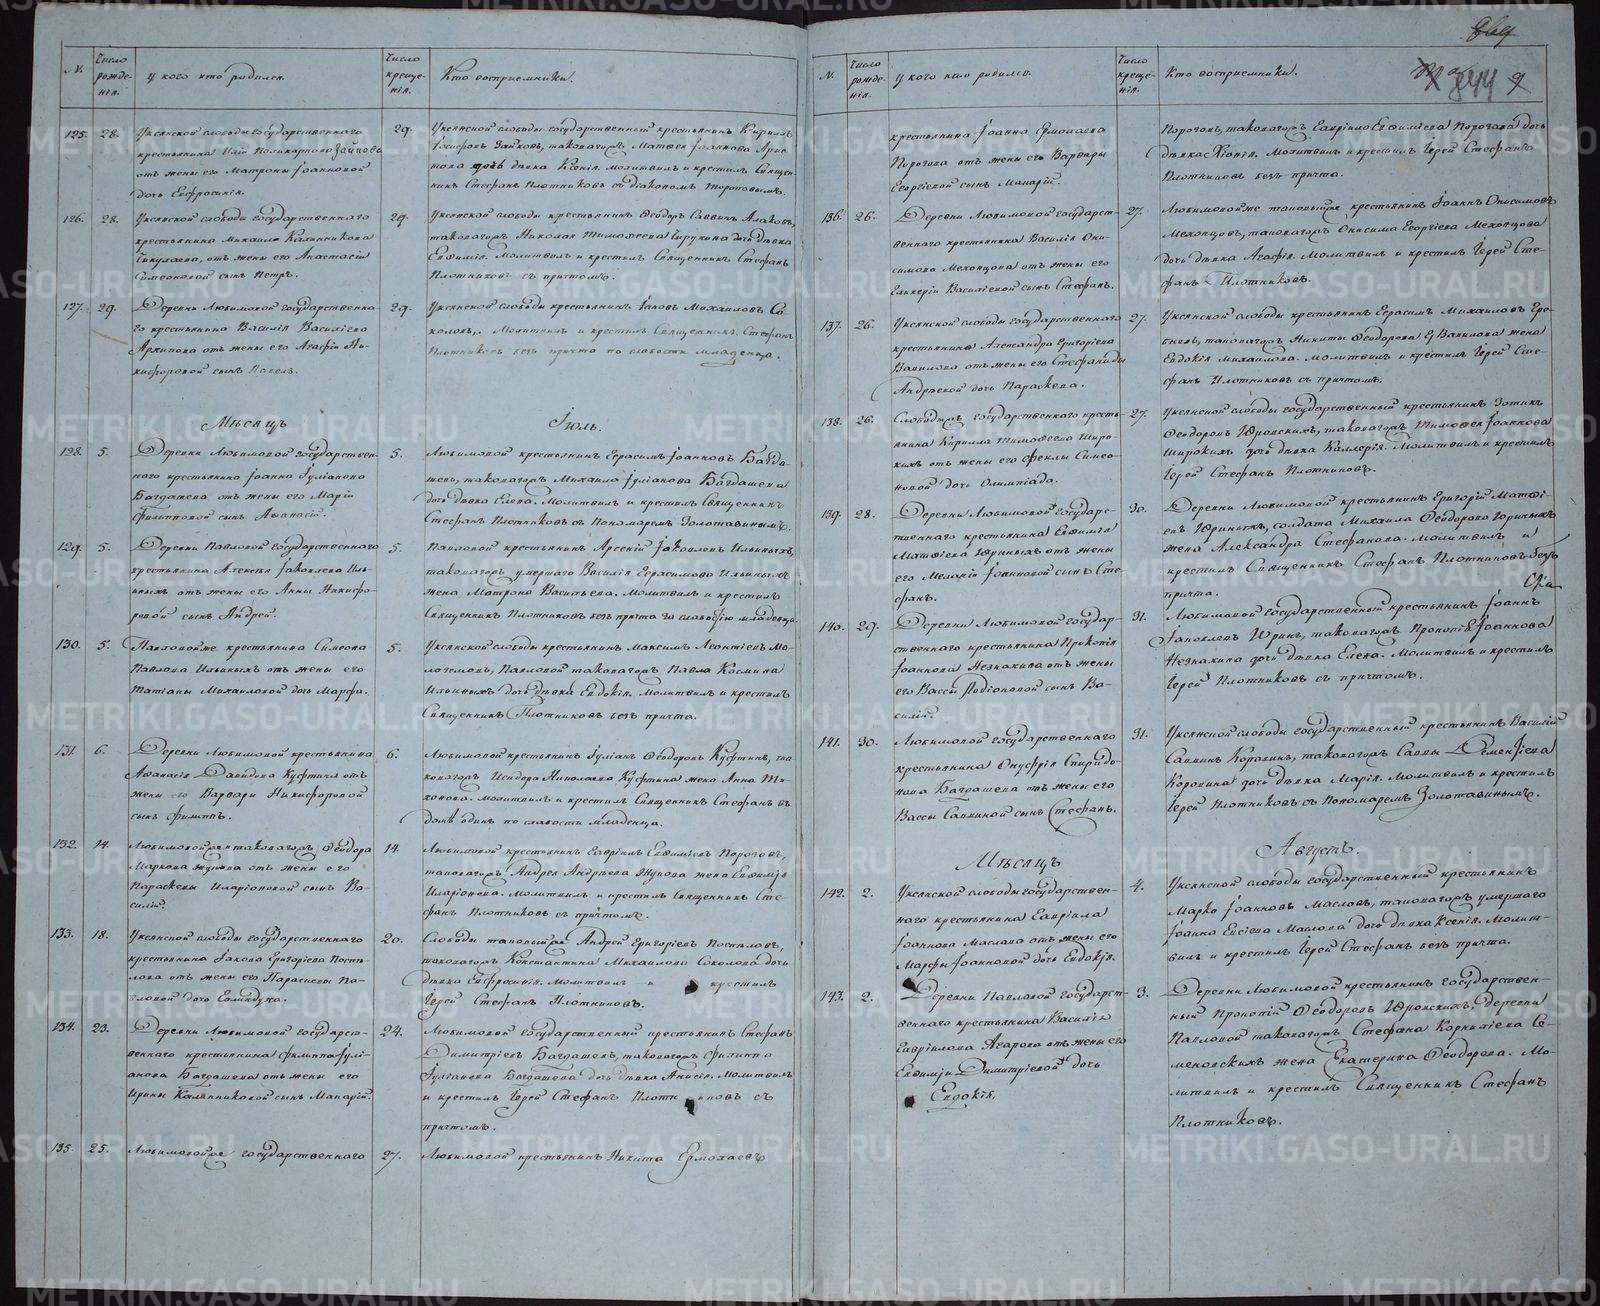 №.
Число рожде-нія.
у кого кто родился.
Число креще-нія.
Кто восприемники.
125.
28.
Уксянской слободы государственнаго
крестьянина Поликарпова Зайкова
отъ жены его Матроны Іоанновой
дочь Евфросинія.
29.
Уксянской слободы государственный крестьянинъ Кириллъ
Зайковъ, таковагожъ Матвея Іоаннова
дочь дѣвка Ксенія. Молитвилъ и крестилъ Священ-
никъ Стефанъ Плотниковъ съ діакономъ
126.
28.
Уксянской слободы государственнаго
крестьянина Михаила Калинникова
отъ жены его Анастасіи
Симеоновой сынъ Петръ.
29.
Уксянской слободы крестьянинъ Ѳеодоръ Саввинъ
таковагожъ Николая Тимоѳеева дочь дѣвка
Евѳимія. Молитвилъ и крестилъ Священникъ Стефанъ
Плотниковъ съ причтомъ.
127.
29.
Деревни Любимовой государственна-
го крестьянина Василія Василіева
Архипова отъ жены его Агафіи Ни-
кифоровой сынъ Павелъ.
29.
Уксянской слободы крестьянинъ Іаковъ Михаиловъ Со-
коловъ, Молитвилъ и крестилъ Священникъ Стефанъ
Плотниковъ безъ причта по слабости младенца.
Мѣсяцъ
Іюль.
128.
5.
Деревни Любимовой государствен-
наго крестьянина Іоанна Іуліанова
Багдашева отъ жены его Маріи
Филипповой сынъ Аѳанасій.
5.
Любимовой крестьянинъ Герасимъ Іоанновъ Багда-
шевъ, таковагожъ Михаила Іуліанова Багдашева
дочь дѣвка Елена. Молитвилъ и крестилъ Священникъ
Стефанъ Плотниковъ съ Пономаремъ Золотавинымъ.
129.
5.
Деревни Павловой государственнаго
крестьянина Алексѣя Іаковлева Иль-
иныхъ отъ жены его Анны Никифо-
ровой сынъ Андрей.
5.
Павловой крестьянинъ Арсеній Іаковлевъ Ильиныхъ,
таковагожъ умершаго Василія Герасимова Ильиныхъ
жена Матрона Васильева. Молитвилъ и крестилъ
Священникъ Плотниковъ безъ причта за слабостію младенца.
130.
5.
Павловойже крестьянина Симеона
Павлова Ильиныхъ отъ жены его
Татіаны Михаиловой дочь Марфа.
5.
Уксянской слободы крестьянинъ Максимъ Леонтіевъ
Павловой таковагожъ Павла Космина
Ильиныхъ дочь дѣвка Евдокія. Молитвилъ и крестилъ
Священникъ Плотниковъ безъ причта.
131.
6.
Деревни Любимовой крестьянина
Аѳанасія Давидова Куфтина отъ
жены его Варвары Никифоровой
сынъ Филиппъ.
6.
Любимовой крестьянинъ Іуліанъ Ѳеодоровъ Куфтинъ, та-
ковагожъ Исидора Николаева Куфтина жена Анна Ти-
хонова. Молитвилъ и крестилъ Священникъ Стефанъ въ
домѣ одинъ по слабости младенца.
132.
14.
Любимовойже таковагожъ Ѳеодора
Маркова Жукова отъ жены его
Параскевы Иларіоновой сынъ Ва-
силій.
14.
Любимовой крестьянинъ Гавріилъ Евѳиміевъ Пороговъ,
таковагожъ Андрея Андреева Жукова жена Евѳимія
Иларіонова. Молитвилъ и крестилъ Священникъ Сте-
фанъ Плотниковъ съ причтомъ.
133.
18.
Уксянской слободы государственнаго
крестьянина Іакова Григоріева Поспѣ-
лова отъ жены его Параскевы Па-
вловой дочь
20.
Слободы таковыйже Андрей Григоріевъ Поспѣловъ,
таковагожъ Константина Михаилова Соколова дочь
дѣвка Евфросинія. Молитвилъ и крестилъ
Іерей Стефанъ Плотниковъ.
134.
23.
Деревни Любимовой государст-
веннаго крестьянина Филиппа Іулі-
анова Багдашева отъ жены его
Ирины Калинниковой сынъ Макарій.
24.
Любимовой государственный крестьянинъ Стефанъ
Димитріевъ Багдашевъ, таковагожъ Филиппа
Іуліанова Багдашева дочь дѣвка Анисія. Молитвилъ
и крестилъ Іерей Стефанъ Плотниковъ съ
причтомъ.
135.
25.
Любимовойже государственнаго
27.
Любимовой крестьянинъ Никита Ермолаевъ
№.
Число рожде-нія.
у кого кто родился.
Число креще-нія.
Кто восприемники.
844
крестьянина Іоанна Ермолаева
Порогова отъ жены его Варвары
Георгіевой сынъ Макарій.
Пороговъ, таковагожъ Гавріила Евѳиміева Порогова дочь
дѣвка Хіонія. Молитвилъ и крестилъ Іерей Стефанъ
Плотниковъ безъ причта.
136.
26.
Деревни Любимовой государст-
веннаго крестьянина Василія Они-
симова Мехонцова отъ жены его
Гликеріи Василіевой сынъ Стефанъ.
27.
Любимовойже таковыйже крестьянинъ Іоаннъ Онисимовъ
Мехонцовъ, таковагожъ Онисима Георгіева Мехонцова
дочь дѣвка Агафія. Молитвилъ и крестилъ Іерей Сте-
фанъ Плотниковъ.
137.
26.
Уксянской слободы государственнаго
крестьянина Александра Григоріева
Вавилова отъ жены его Стефаниды
Андреевой дочь Параскева.
27.
Уксянской слободы крестьянинъ Герасимъ Михаиловъ
таковагожъ Никиты Ѳеодорова Вавилова жена
Евдокія Михаилова. Молитвилъ и крестилъ Іерей Сте-
фанъ Плотниковъ съ причтомъ.
138.
26.
Слободыжъ государственнаго кресть-
янина Кирилла Тимоѳеева Широ-
кихъ отъ жены его Ѳеклы Симео-
новой дочь Олимпіада.
27.
Уксянской слободы государственный крестьянинъ Зотикъ
Ѳеодоровъ Юровскихъ, таковагожъ Тимоѳея Іоаннова
Широкихъ дочь дѣвка Каллерія. Молитвилъ и крестилъ
Іерей Стефанъ Плотниковъ.
139.
28.
Деревни Любимовой государс-
твеннаго крестьянина Евѳимія
Матѳіева Юриныхъ отъ жены
его Меланіи Іоанновой сынъ Сте-
фанъ.
30.
Деревни Любимовой крестьянинъ Григорій Матѳі-
евъ Юриныхъ, солдата Михаила Ѳеодорова Юриныхъ
жена Александра Стефанова. Молитвилъ и
крестилъ Священникъ Стефанъ Плотниковъ безъ
причта.
140.
29.
Деревни Любимовой государ-
ственнаго крестьянина Прокопія
Іоаннова Незнахина отъ жены
его Вассы Родіоновой сынъ Ва-
силій.
31.
Любимовой государственный крестьянинъ Іоаннъ
Іаковлевъ Юринъ, таковагожъ Прокопія Іоаннова
Незнахина дочь дѣвка Елена. Молитвилъ и крестилъ
Іерей Плотниковъ съ причтомъ.
141.
30.
Любимовой государственнаго
крестьянина Онуфрія Спиридо-
нова Багдашева отъ жены его
Вассы Саввиной сынъ Стефанъ.
31.
Уксянской слободы государственный крестьянинъ Василій
Саввинъ Коровинъ, таковагожъ Саввы Дементіева
Коровина дочь дѣвка Марія. Молитвилъ и крестилъ
Іерей Плотниковъ съ Пономаремъ Золотавинымъ.
Мѣсяцъ
Августъ.
142.
2.
Уксянской слободы государствен-
наго крестьянина Гавріила
Іоаннова Маслова отъ жены его
Марфы Іоанновой дочь Евдокія.
4.
Уксянской слободы государственный крестьянинъ
Марко Іоанновъ Масловъ, таковагожъ умершаго
Іоанна Евсіева Маслова дочь дѣвка Ксенія. Молит-
вилъ и крестилъ Іерей Стефанъ безъ причта.
143.
2.
Деревни Павловой государст-
веннаго крестьянина Василія
Гавріилова Агарова отъ жены его
Евѳиміи Димитріевой дочь
Евдокія.
3.
Деревни Любимовой крестьянинъ государствен-
ный Прокопій Ѳеодоровъ Юровскихъ, деревни
Павловой таковагожъ Стефана Корниліева Се-
меновскихъ жена Екатерина Ѳеодорова. Мо-
литвилъ и крестилъ Священникъ Стефанъ
Плотниковъ.
METRIKI.GASO-URAL.RU